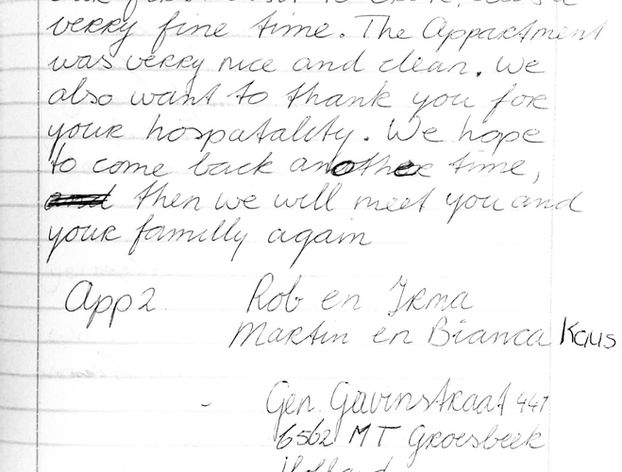 verry fine time. The Appartment
was verry nice and clean. We
also want to thank you for
your hospatality. We hope
to come back another time,
then we will meet you and
your familly again
App 2 Rob en Irma
Martin en Bianca Kaus
- Gen Gavinstraat 447
6562 MT Groesbeek
Holland